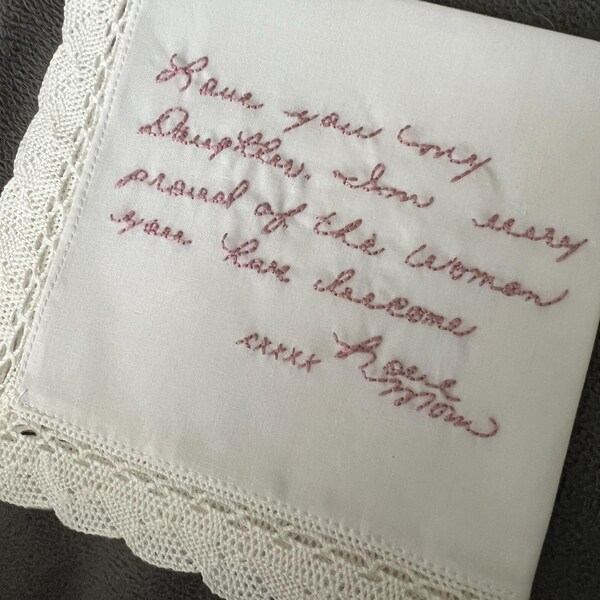 Love you my
Daughter. Im very
proud of the woman
you have become
xxxxx Love
Mom